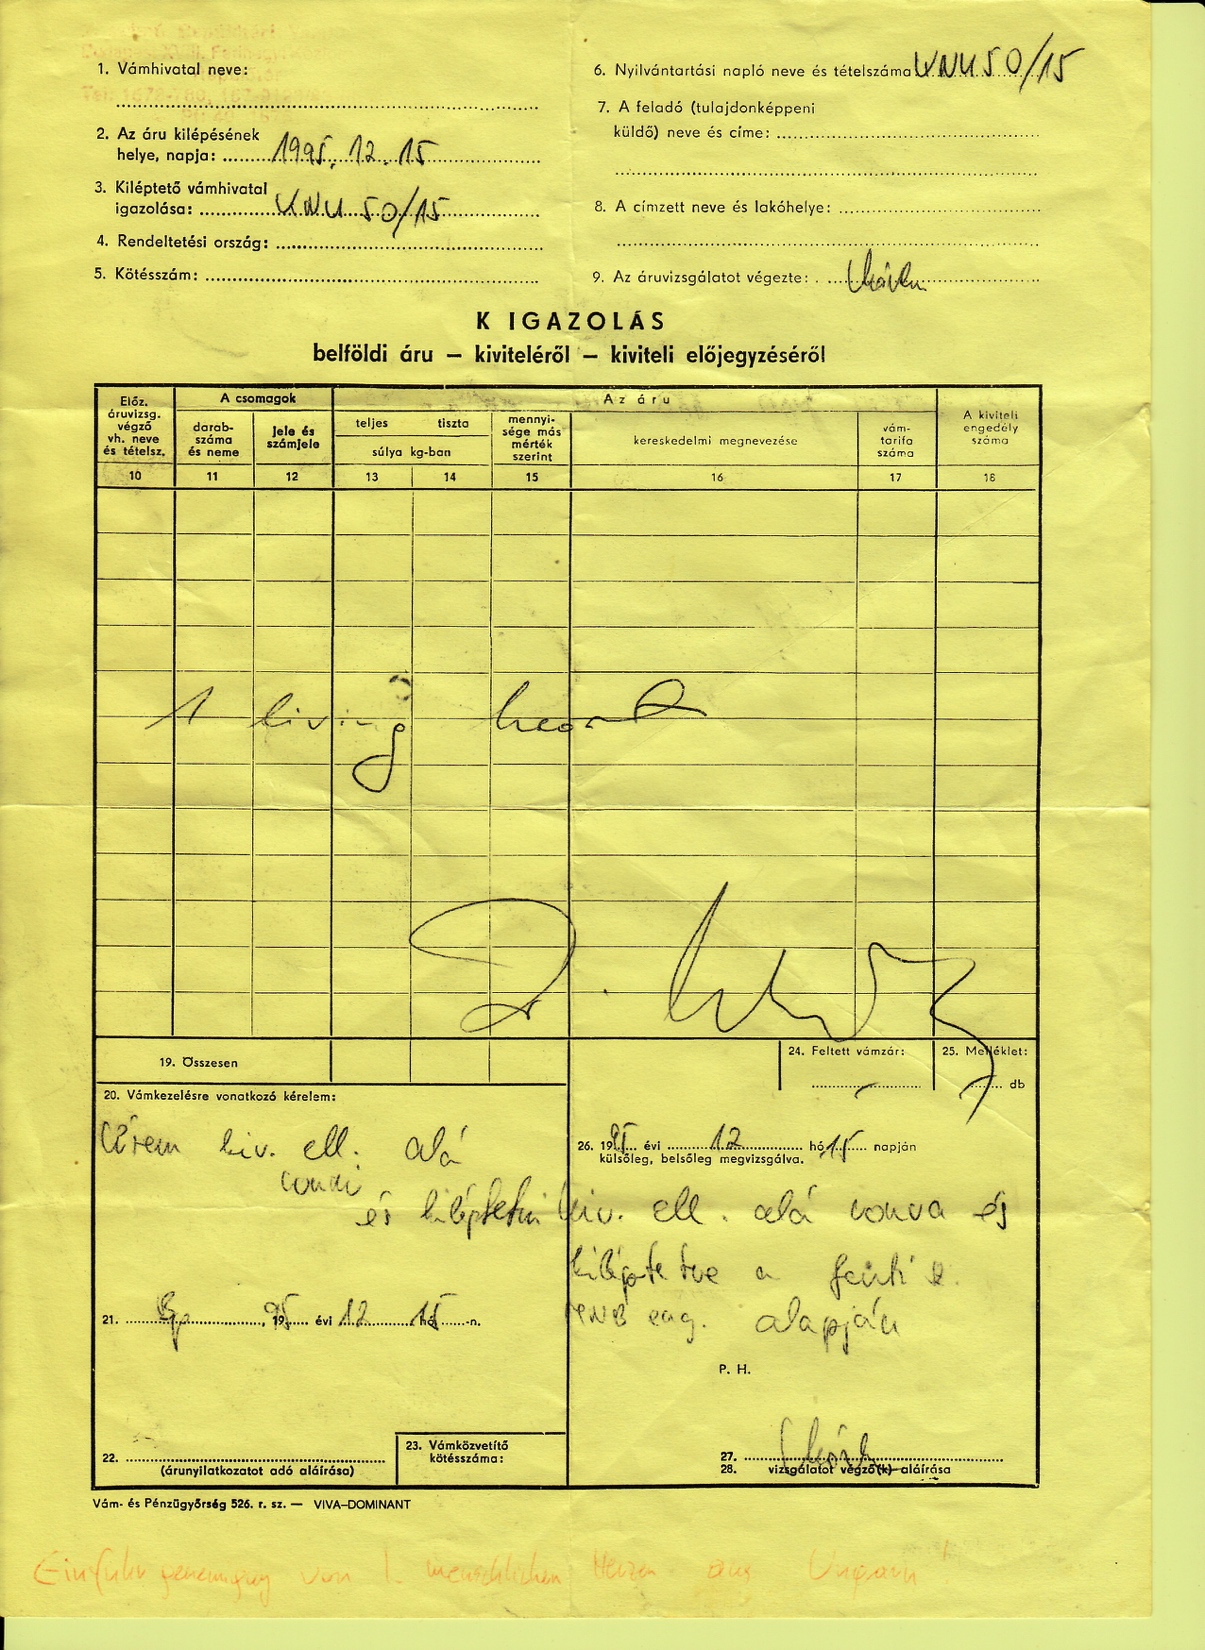 1. Vámhivatal neve:
2. Az áru kilépésének
helye, napja: 1995. 12. 15
3. Kiléptető vámhivatal
igazolása: 50/15
4. Rendeltetési ország:
5. Kötésszám:
6. Nyilvántartási napló neve és tételszáma 50/15
7. A feladó (tulajdonképpeni
küldő) neve és címe:
8. A címzett neve és lakóhelye:
9. Az áruvizsgálatot végezte:
K IGAZOLÁS
belföldi áru — kiviteléről — kiviteli előjegyzéséről
Előz.
áruvizsg.
végző
vh. neve
és tételsz.
A csomagok
darab-
száma
és neme
jele és
számjele
Az áru
teljes tiszta
súlya kg-ban
mennyi-
sége más
mérték
szerint
kereskedelmi megnevezése
vám-
tarifa
száma
A kiviteli
engedély
száma
10 11 12 13 14 15 16 17 18
1 living heart
19. Összesen
24. Feltett vámzár:
25. Melléklet:
db
20. Vámkezelésre vonatkozó kérelem:
Kérem kiv. ell. alá
vonni
és kiléptetni
21. Bp, 1995 évi 12 hó 15-n.
22.
(árunyilatkozatot adó aláírása)
23. Vámközvetítő
kötésszáma:
26. 1995 évi 12 hó 15 napján
külsőleg, belsőleg megvizsgálva.
kiv. ell. alá vonva és
kiléptetve a fenti
eng. alapján
P. H.
27.
28. vizsgálatot végző(k) aláírása
Vám- és Pénzügyőrség 526. r. sz. — VIVA–DOMINANT
Einfuhrgenemigung von 1 menschlichen Herzen aus Ungarn!